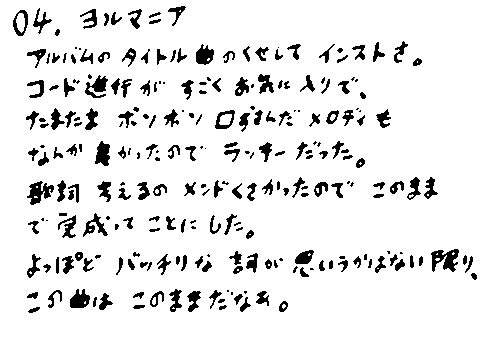 04. ヨルマニア
アルバムの タイトル 曲のくせして インストさ。
コード進行が すごく お気に入りで、
たまたま ボソボソ 口ずさんだ メロディも
なんか良かったので ラッキーだった。
歌詞 考えるの メンドくさかったので このまま
で完成ってことにした。
よっぽど バッチリな 詞が 思いうかばない 限り、
この曲は このままだなぁ。